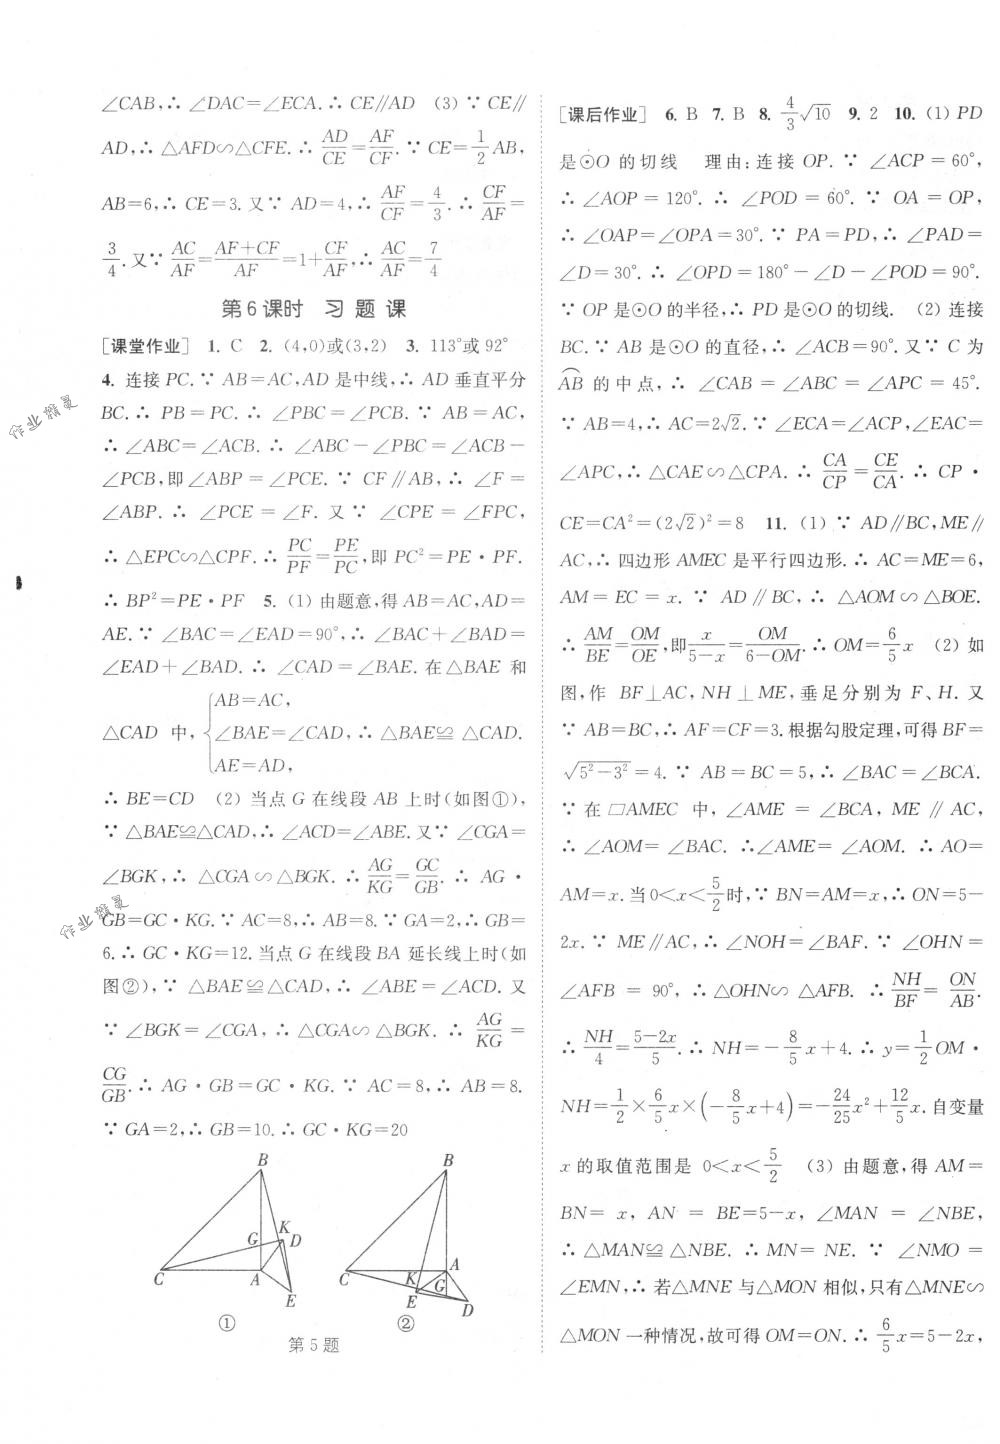 ∠CAB,∴ ∠DAC=∠ECA.∴ CE∥AD (3) ∵ CE∥
AD,∴ △AFD∽△CFE.∴ AD/CE=AF/CF.∵ CE=1/2AB,
AB=6,∴ CE=3.又∵ AD=4,∴ AF/CF=4/3.∴ CF/AF=
3/4.又∵ AC/AF=(AF+CF)/AF=1+CF/AF,∴ AC/AF=7/4
第6课时 习题课
[课堂作业] 1. C 2. (4,0)或(3,2) 3. 113°或92°
4. 连接PC.∵ AB=AC,AD是中线,∴ AD垂直平分
BC.∴ PB=PC.∴ ∠PBC=∠PCB.∵ AB=AC,
∴ ∠ABC=∠ACB.∴ ∠ABC-∠PBC=∠ACB-
∠PCB,即∠ABP=∠PCE.∵ CF∥AB,∴ ∠F=
∠ABP.∴ ∠PCE=∠F.又∵ ∠CPE=∠FPC,
∴ △EPC∽△CPF.∴ PC/PF=PE/PC,即PC²=PE·PF.
∴ BP²=PE·PF 5. (1) 由题意,得AB=AC,AD=
AE.∵ ∠BAC=∠EAD=90°,∴ ∠BAC+∠BAD=
∠EAD+∠BAD.∴ ∠CAD=∠BAE.在△BAE 和
AB=AC,
△CAD 中, { ∠BAE=∠CAD,∴ △BAE≌△CAD.
AE=AD,
∴ BE=CD (2) 当点G在线段AB上时(如图①),
∵ △BAE≌△CAD,∴ ∠ACD=∠ABE.又∵ ∠CGA=
∠BGK,∴ △CGA∽△BGK.∴ AG/KG=GC/GB.∴ AG·
GB=GC·KG.∵ AC=8,∴ AB=8.∵ GA=2,∴ GB=
6.∴ GC·KG=12.当点G在线段BA延长线上时(如
图②),∵ △BAE≌△CAD,∴ ∠ABE=∠ACD.又
∵ ∠BGK=∠CGA,∴ △CGA∽△BGK.∴ AG/KG=
CG/GB.∴ AG·GB=GC·KG.∵ AC=8,∴ AB=8.
∵ GA=2,∴ GB=10.∴ GC·KG=20
B
K
G
D
C
A
E
①
B
A
C
K
G
E
D
②
第5题
[课后作业] 6. B 7. B 8. 4/3√10 9. 2 10. (1) PD
是⊙O的切线 理由:连接OP.∵ ∠ACP=60°,
∴ ∠AOP=120°.∴ ∠POD=60°.∵ OA=OP,
∴ ∠OAP=∠OPA=30°.∵ PA=PD,∴ ∠PAD=
∠D=30°.∴ ∠OPD=180°-∠D-∠POD=90°.
∵ OP是⊙O的半径,∴ PD是⊙O的切线. (2) 连接
BC.∵ AB是⊙O的直径,∴ ∠ACB=90°.又∵ C为
⌒AB 的中点,∴ ∠CAB=∠ABC=∠APC=45°.
∵ AB=4,∴ AC=2√2.∵ ∠ECA=∠ACP,∠EAC=
∠APC,∴ △CAE∽△CPA.∴ CA/CP=CE/CA.∴ CP·
CE=CA²=(2√2)²=8 11. (1) ∵ AD∥BC,ME∥
AC,∴ 四边形AMEC是平行四边形.∴ AC=ME=6,
AM=EC=x.∵ AD∥BC,∴ △AOM∽△BOE.
∴ AM/BE=OM/OE,即x/(5-x)=OM/(6-OM).∴ OM=6/5x (2) 如
图,作 BF⊥AC,NH⊥ME,垂足分别为F、H.又
∵ AB=BC,∴ AF=CF=3.根据勾股定理,可得BF=
√(5²-3²)=4.∵ AB=BC=5,∴ ∠BAC=∠BCA.
∵在□AMEC中,∠AME=∠BCA,ME∥AC,
∴ ∠AOM=∠BAC.∴∠AME=∠AOM.∴ AO=
AM=x.当0<x<5/2时,∵ BN=AM=x,∴ ON=5-
2x.∵ ME∥AC,∴ ∠NOH=∠BAF.∵ ∠OHN=
∠AFB=90°,∴ △OHN∽△AFB.∴ NH/BF=ON/AB.
∴ NH/4=(5-2x)/5.∴ NH=-8/5x+4.∴ y=1/2OM·
NH=1/2×6/5x×(-8/5x+4)=-24/25x²+12/5x.自变量
x的取值范围是 0<x<5/2 (3) 由题意,得AM=
BN=x,AN=BE=5-x,∠MAN=∠NBE,
∴ △MAN≌△NBE.∴ MN=NE.∵ ∠NMO=
∠EMN,∴ 若△MNE与△MON相似,只有△MNE∽
△MON一种情况,故可得OM=ON.∴ 6/5x=5-2x,
作业精灵
作业精灵